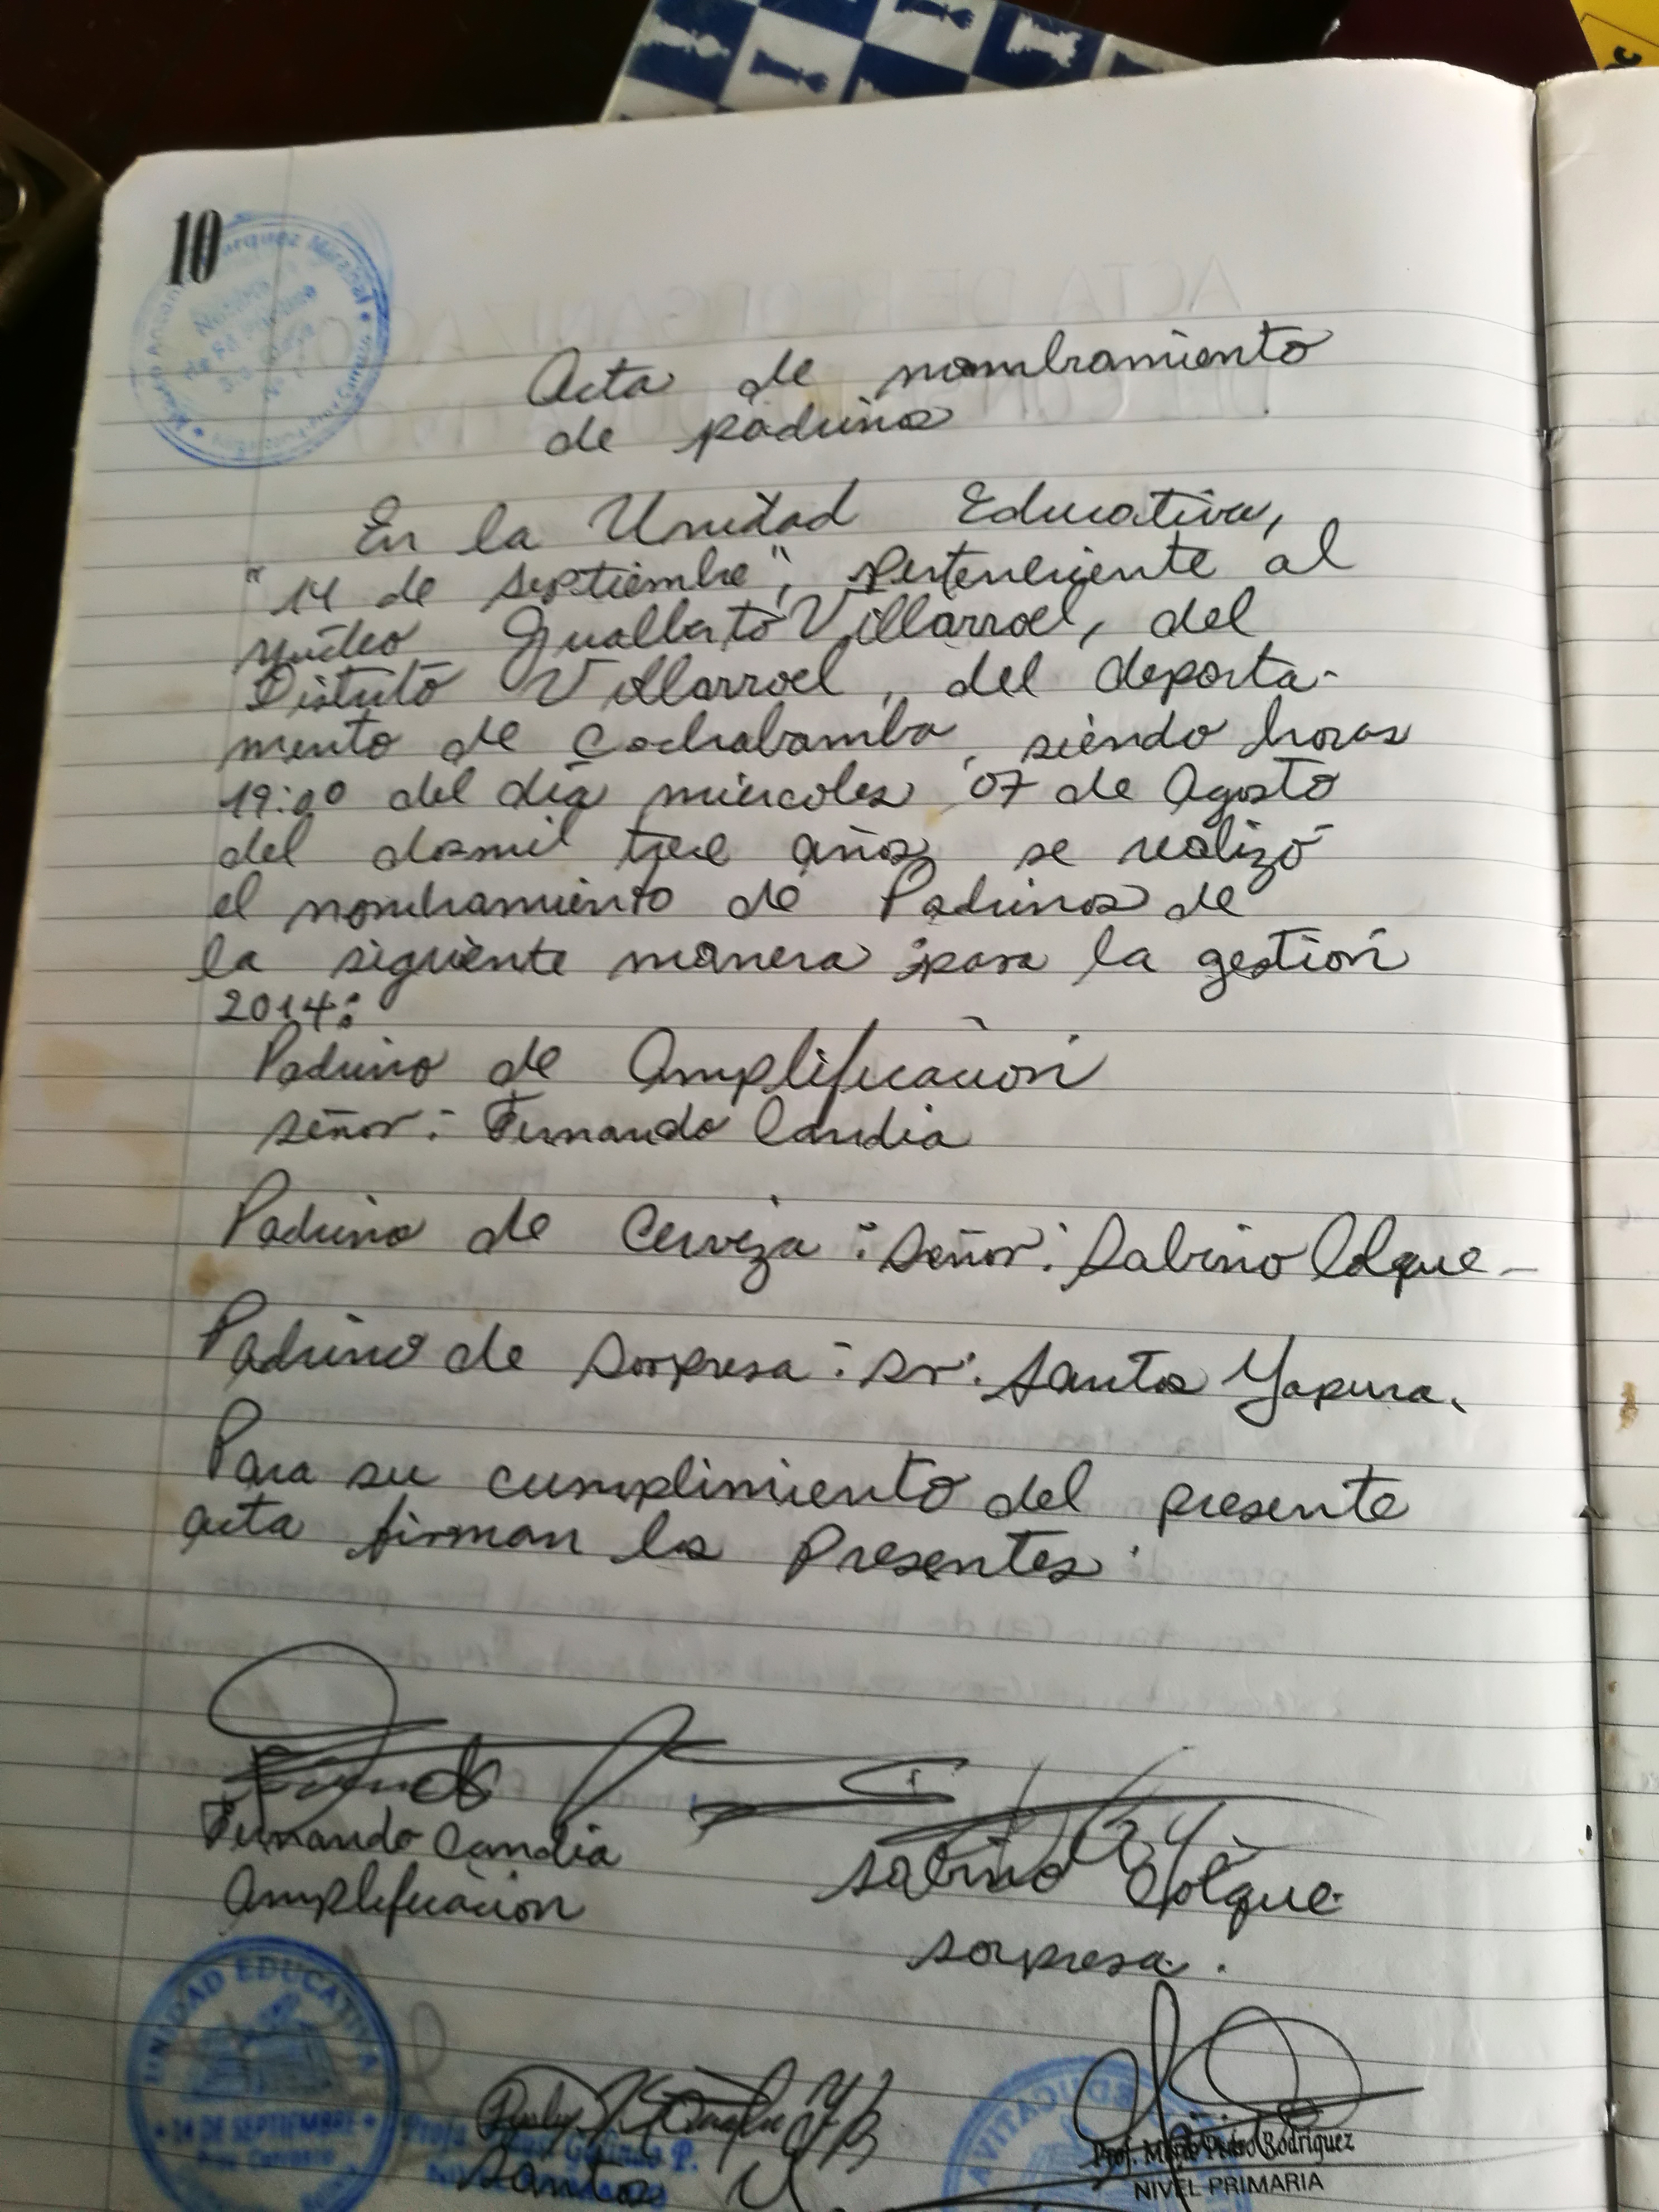 10
Acta de nombramiento
de padrino
En la Unidad Educativa,
"14 de septiembre", perteneciente al
núcleo Gualberto Villarroel, del
Distrito Villarroel, del departa-
mento de Cochabamba, siendo horas
19:00 del día miercoles 07 de Agosto
del dosmil trece años se realizó
el nombramiento de Padrinos de
la siguiente manera para la gestión
2014:
Padrino de Amplificación
señor: Fernando Candia
Padrino de Cerveza: Señor: Sabino Colque-
Padrino de Sorpresa: Sr. Santos Yapura.
Para su cumplimiento del presente
acta firman los Presentes:
Fernando Candia
Amplificación
Sabino Colque.
sorpresa.
UNIDAD EDUCATIVA
14 DE SEPTIEMBRE
EDUCATIVA
Prof. Pedro Rodriguez
NIVEL PRIMARIA
Santos Y.